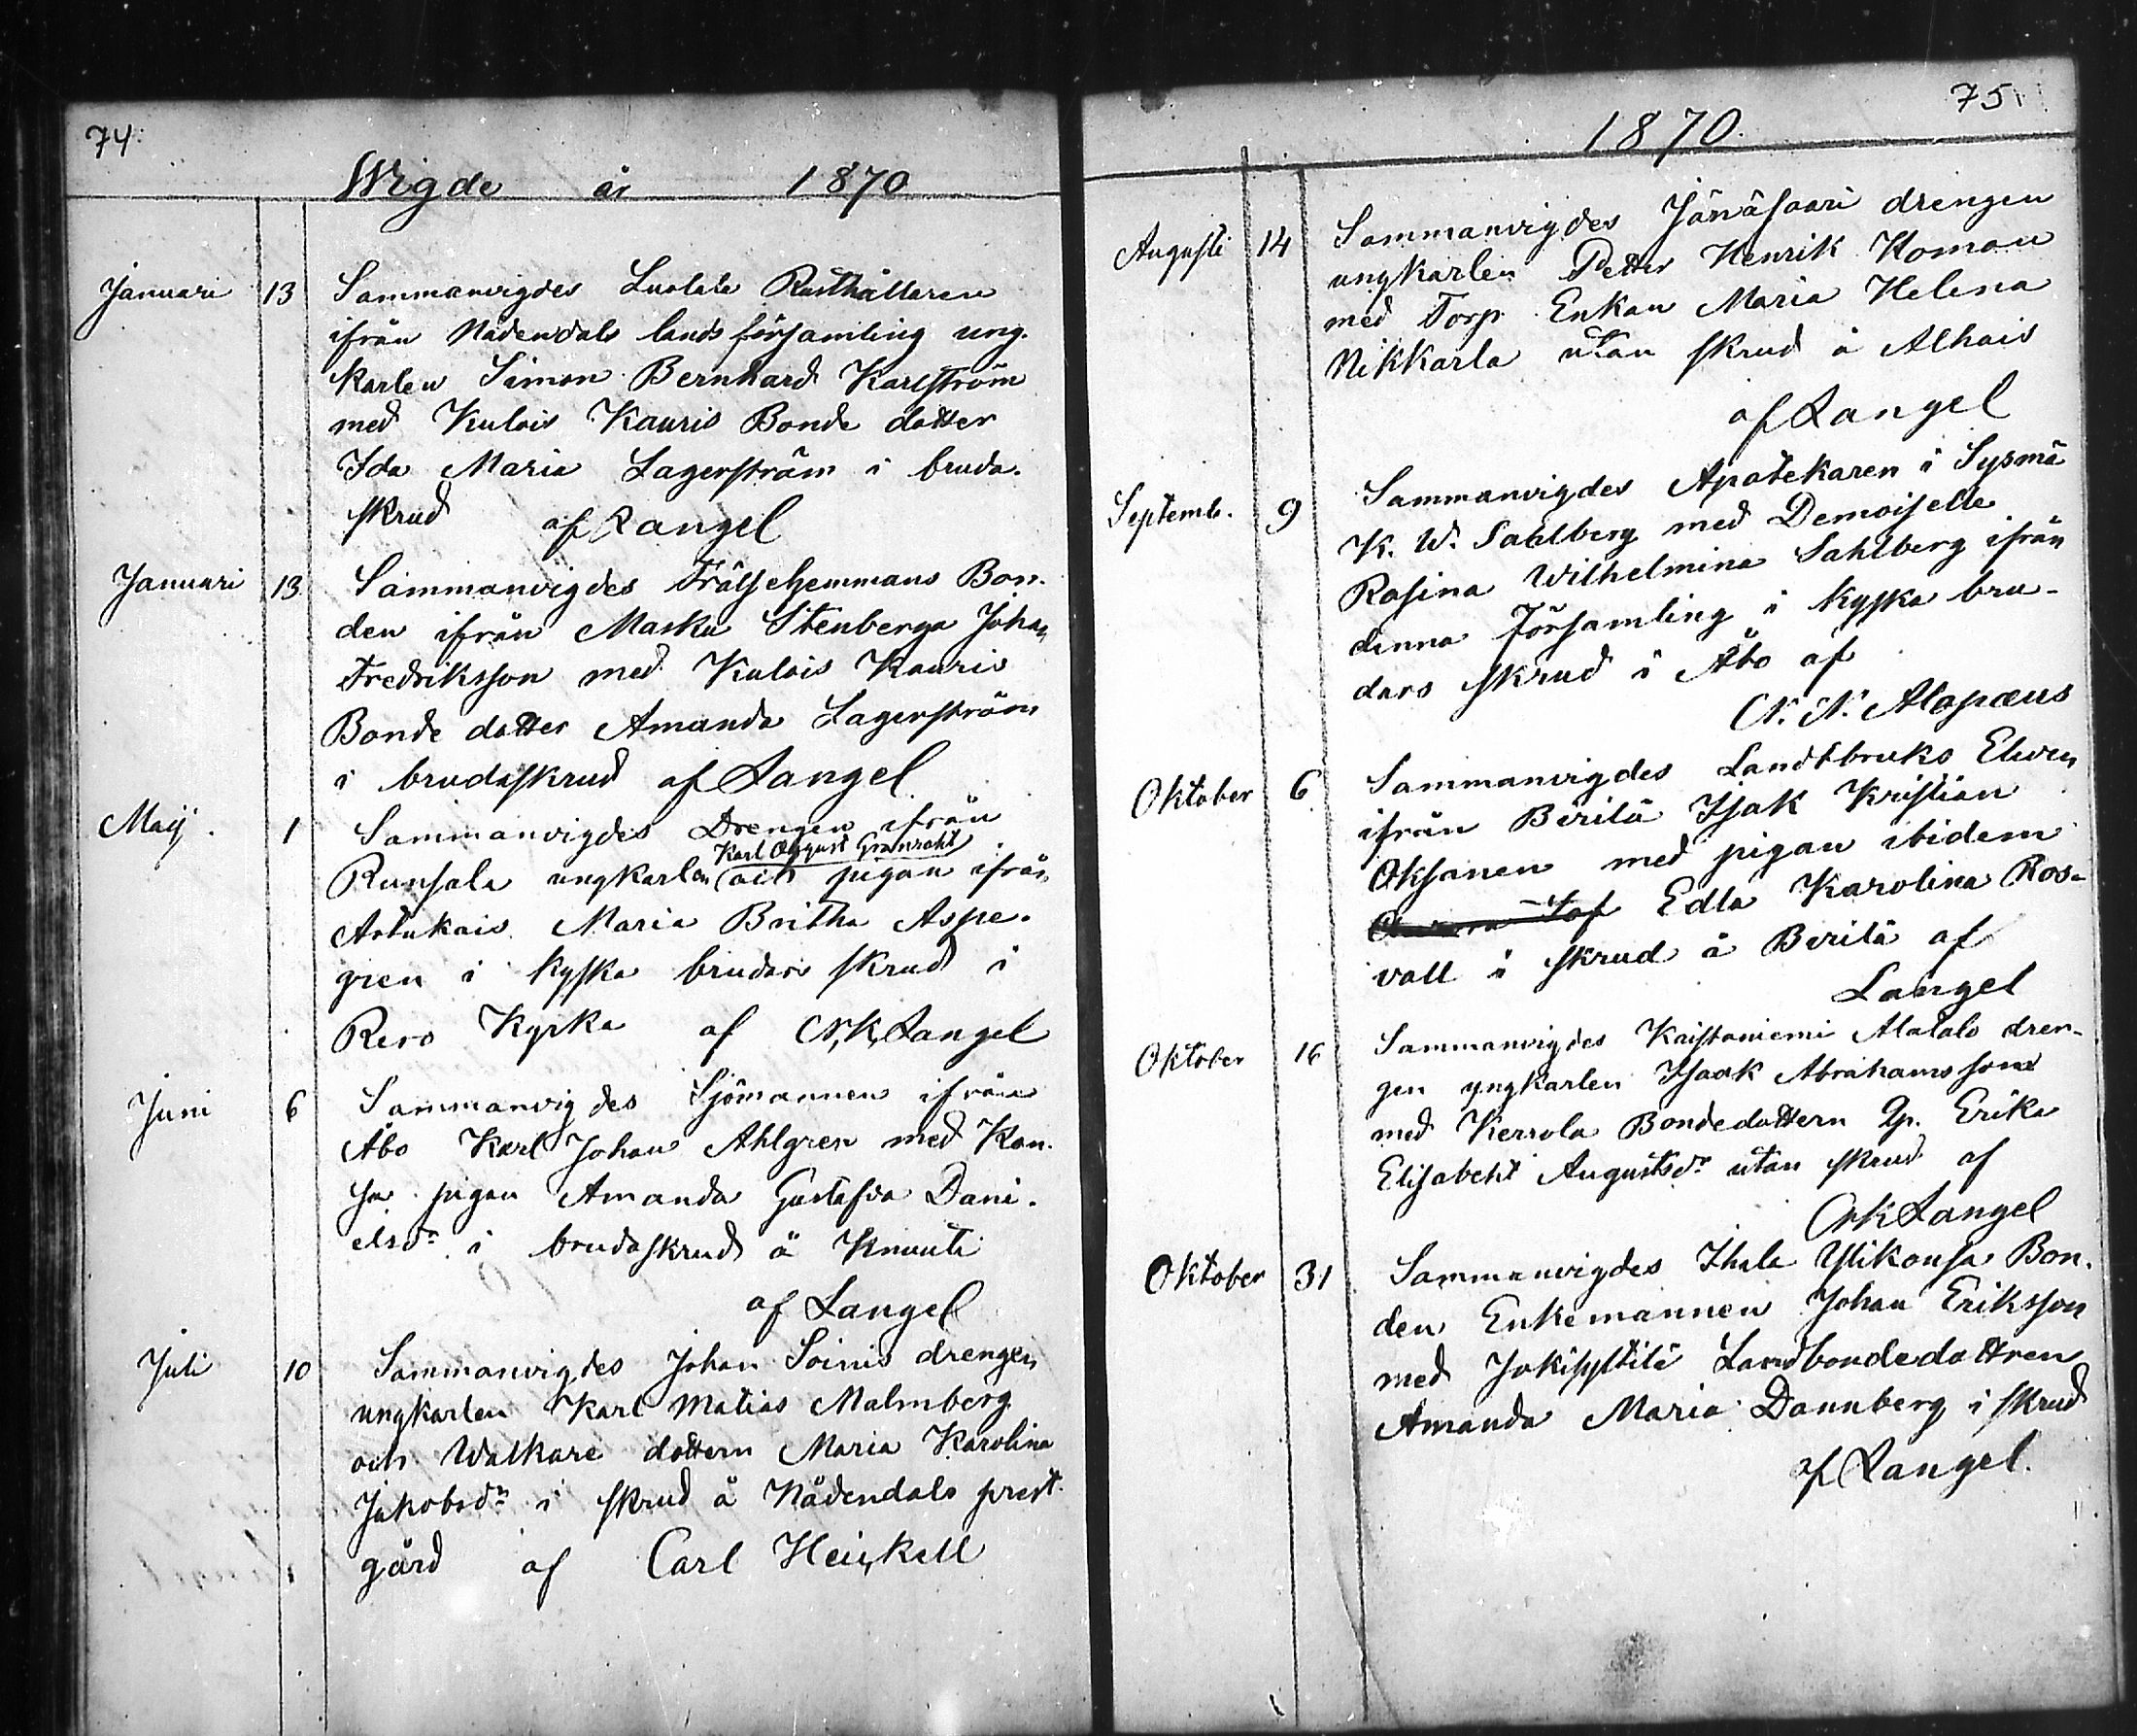 74.
Wigde år 1870
Januari 13 Sammanvigdes Luolala Rusthållaren
ifrån Nådendals lands församling ung-
karlen Simon Bernhard Karlström
med Kulois Kauris Bonde dotter
Ida Maria Lagerström i bruda-
skrud af Langel
Januari 13 Sammanvigdes Frälsehemmans Bon-
den ifrån Masku Stenberga Johan
Fredriksson med Kulois Kauris
Bonde dotter Amanda Lagerström
i brudaskrud af Langel
Maij 1 Sammanvigdes Drengen ifrån
Karl August Granroht
Runsala ungkarlen och pigan ifrån
Artukais Maria Britha Aspe-
gren i kyska brudars skrud i
Reso Kyrka af N. K. Langel
Juni 6 Sammanvigdes Sjömannen ifrån
Åbo Karl Johan Ahlgren med Kan-
sa pigan Amanda Gustafva Dani-
elsdr i brudaskrud å Knuuti
af Langel
Juli 10 Sammanvigdes Johan Soinis drengen
ungkarlen Karl Matias Malmberg
och Walkare dottern Maria Karolina
Jakobsdr i skrud å Nådendals prest-
gård af Carl Heinkell
75.
1870.
Augusti 14 Sammanvigdes Jänäsaari drengen
ungkarlen Petter Henrik Homan
med Torp. Enkan Maria Helena
Nikkarla utan skrud å Alhais
af Langel
Septemb. 9 Sammanvigdes Apotekaren i Sysmä
K. W. Sahlberg med Demoiselle
Rosina Wilhelmina Sahlberg ifrån
denna församling i kyska bru-
dars skrud i Åbo af
N. N. Alopæus
Oktober 6 Sammanvigdes Landtbruks Elven
ifrån Beritä Isak Kristian
Oksanen med pigan ibidem
Edla Karolina Ros-
vall i skrud å Beritä af
Langel
Oktober 16 Sammanvigdes Kaistaniemi Alatalo dren-
gen yngkarlen Isaak Abrahamsson
med Kerrola Bondedottern Erika
Elisabeht Augustsdr utan skrud af
NK Langel
Oktober 31 Sammanvigdes Ihala Ylikonsa Bon-
den Enkemannen Johan Eriksson
med Landbondedottren
Amanda Maria Dannberg i skrud
af Langel.